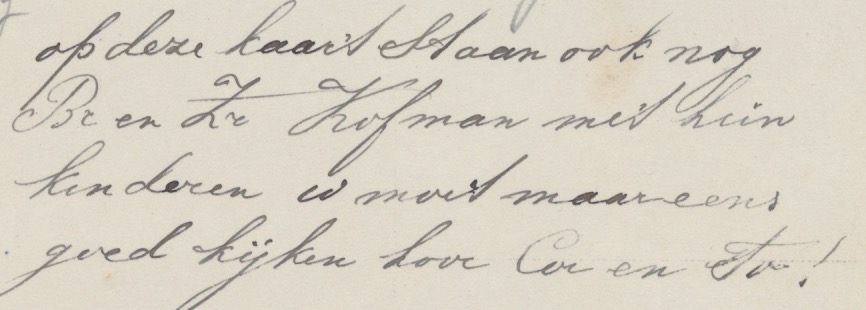 op deze kaart staan ook nog
Br en Zr Hofman met hun
kinderen u moet maar eens
goed kijken hoor Cor en To!